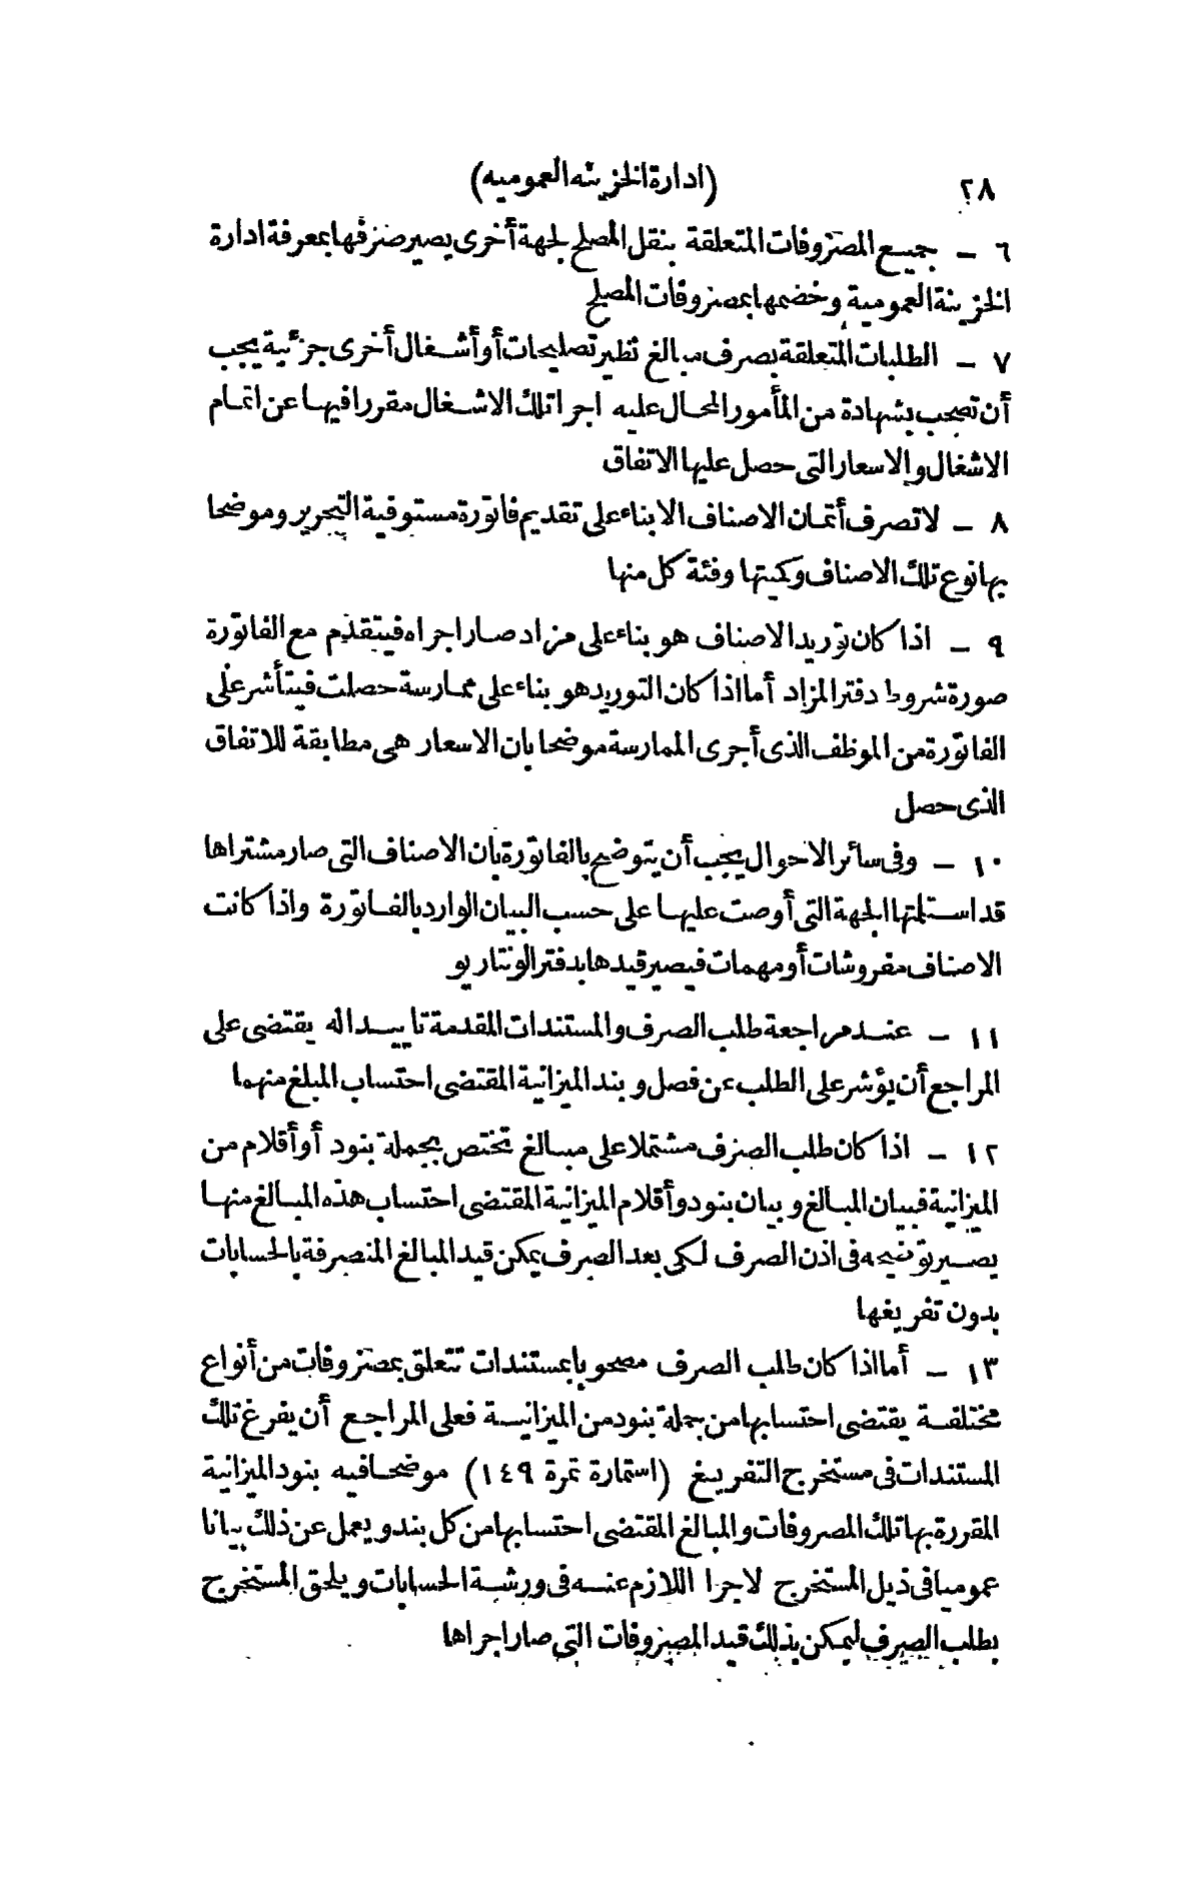 ٢٨ (ادارة الخزينه العموميه)
٦ – جميع المصروفات المتعلقة بنقل المصلح لجهة أخرى يصير صرفها بمعرفة ادارة
الخزينة العمومية وخصمها بمصروفات المصلح
٧ – الطلبات المتعلقة بصرف مبالغ نظير تصليحات أو أشغال أخرى جزئية يجب
أن تصحب بشهادة من المأمور المحال عليه اجرا تلك الاشغال مقررا فيها عن اتمام
الاشغال والاسعار التى حصل عليها الاتفاق
٨ – لا تصرف أثمان الاصناف الا بناء على تقديم فاتورة مستوفية التحرير وموضحا
بها نوع تلك الاصناف وكميتها وفئة كل منها
٩ – اذا كان توريد الاصناف هو بناء على مزاد صار اجراه فيتقدم مع الفاتورة
صورة شروط دفتر المزاد أما اذا كان التوريد هو بناء على ممارسة حصلت فيتأشر على
الفاتورة من الموظف الذى أجرى الممارسة موضحا بان الاسعار هى مطابقة للاتفاق
الذى حصل
١٠ – وفى سائر الاحوال يجب أن يتوضح بالفاتورة بان الاصناف التى صار مشتراها
قد استلمتها الجهة التى أوصت عليها على حسب البيان الوارد بالفاتورة واذا كانت
الاصناف مفروشات أو مهمات فيصير قيدها بدفتر الونتاريو
١١ – عند مراجعة طلب الصرف والمستندات المقدمة تاييدا له يقتضى على
المراجع أن يؤشر على الطلب عن فصل وبند الميزانية المقتضى احتساب المبلغ منهما
١٢ – اذا كان طلب الصرف مشتملا على مبالغ تختص بجملة بنود أو أقلام من
الميزانية فبيان المبالغ وبيان بنود وأقلام الميزانية المقتضى احتساب هذه المبالغ منها
يصير توضيحه فى اذن الصرف لكى بعد الصرف يمكن قيد المبالغ المنصرفة بالحسابات
بدون تفريغها
١٣ – أما اذا كان طلب الصرف مصحوبا بمستندات تتعلق بمصروفات من أنواع
مختلفة يقتضى احتسابها من جملة بنود من الميزانية فعلى المراجع أن يفرغ تلك
المستندات فى مستخرج التفريغ (استمارة نمرة ١٤٩) موضحا فيه بنود الميزانية
المقررة بها تلك المصروفات والمبالغ المقتضى احتسابها من كل بند ويعمل عن ذلك بيانا
عموميا فى ذيل المستخرج لاجرا اللازم عنه فى ورشة الحسابات ويلحق المستخرج
بطلب الصرف ليمكن بذلك قيد المصروفات التى صار اجراها